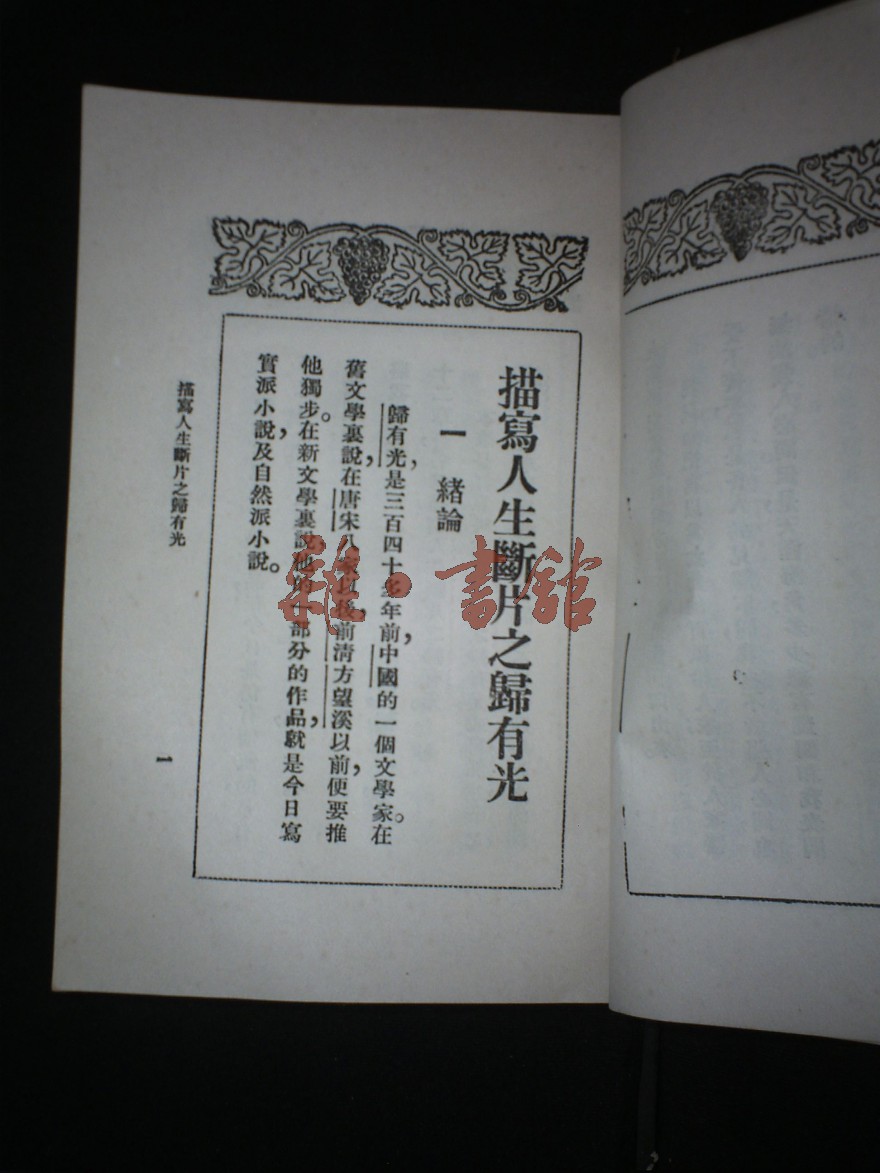 描寫人生斷片之歸有光
一 緒論
歸有光,是三百四十多年前,中國的一個文學家。在
舊文學裏,說在唐宋八家以後,前清方望溪以前,便要推
他獨步。在新文學裏說,他的一部分的作品,就是今日寫
實派小說,及自然派小說。
描寫人生斷片之歸有光
一
雜·書館